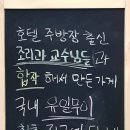 호텔 주방장 출신
조리과 교수님들과
합작 해서 만든 가게
국내 유일무이